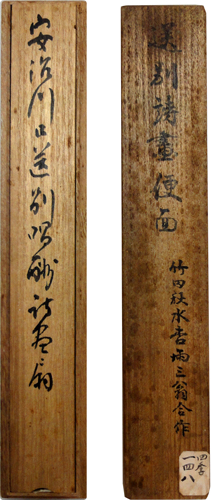 安治川口送別唱酬詩画扇
送別詩畫便面
竹田秋水杏坪三翁合作
一四八